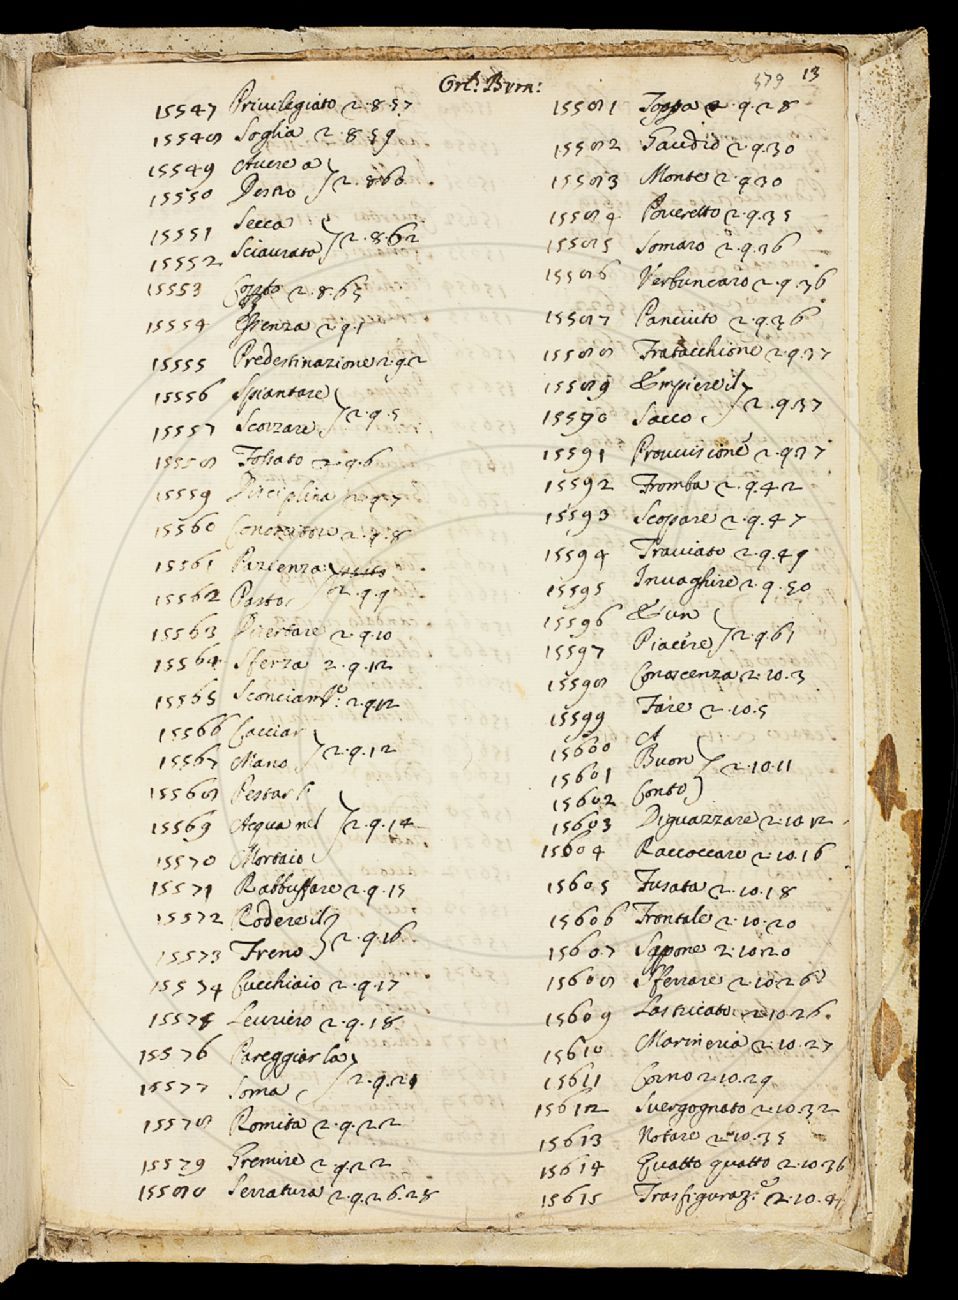 Orl: Bern:
579 13
15547 Priuilegiato 2.8.57
15548 Soglia 2.8.59
15549 Auere a
15550 Desno } 2.8.60
15551 Secca
15552 Sciaurato } 2.8.62
15553 Coppo 2.8.65
15554 Essenza 2.9.1
15555 Predestinazione 2.9.2
15556 Spiantare
15557 Scorzare } 2.9.5
15558 Fossato 2.9.6
15559 Disciplina 2.9.7
15560 2.9.8
15561 Pazienza
15562 Pasto } 2.9.9
15563 Disertare 2.9.10
15564 Sferza 2.9.12
15565 Sconciam.te 2.9.12
15566 Cacciar
15567 Mano } 2.9.12
15568 Pestar l'
15569 Acqua nel } 2.9.14
15570 Mortaio
15571 Rabbuffare 2.9.15
15572 Rodere il
15573 Freno } 2.9.16
15574 Cucchiaio 2.9.17
15575 Leuriero 2.9.18
15576 Pareggiar la
15577 Soma } 2.9.21
15578 Romita 2.9.22
15579 Gremire 2.9.22
15580 Serratura 2.9.26.28
15581 Toppa 2.9.28
15582 Gaudio 2.9.30
15583 Monte 2.9.30
15584 Poueretto 2.9.35
15585 Somaro 2.9.36
15586 2.9.36
15587 Panciuto 2.9.36
15588 Fratacchione 2.9.37
15589 Empiere il
15590 Sacco } 2.9.37
15591 Prouuisione 2.9.37
15592 Tromba 2.9.42
15593 Scopare 2.9.47
15594 Trauiato 2.9.49
15595 Inuaghire 2.9.50
15596 E' un
15597 Piacere } 2.9.61
15598 Conoscenza 2.10.3
15599 Fare 2.10.5
15600 A
15601 Buon } 2.10.11
15602 Conto
15603 Diguazzare 2.10.12
15604 Raccoccare 2.10.16
15605 Fusata 2.10.18
15606 Frontale 2.10.20
15607 Sapone 2.10.20
15608 Sferrare 2.10.26
15609 Lastricato 2.10.26
15610 Marineria 2.10.27
15611 Corno 2.10.29
15612 Suergognato 2.10.32
15613 Notare 2.10.35
15614 Quatto quatto 2.10.36
15615 Trasfiguraz.e 2.10.4